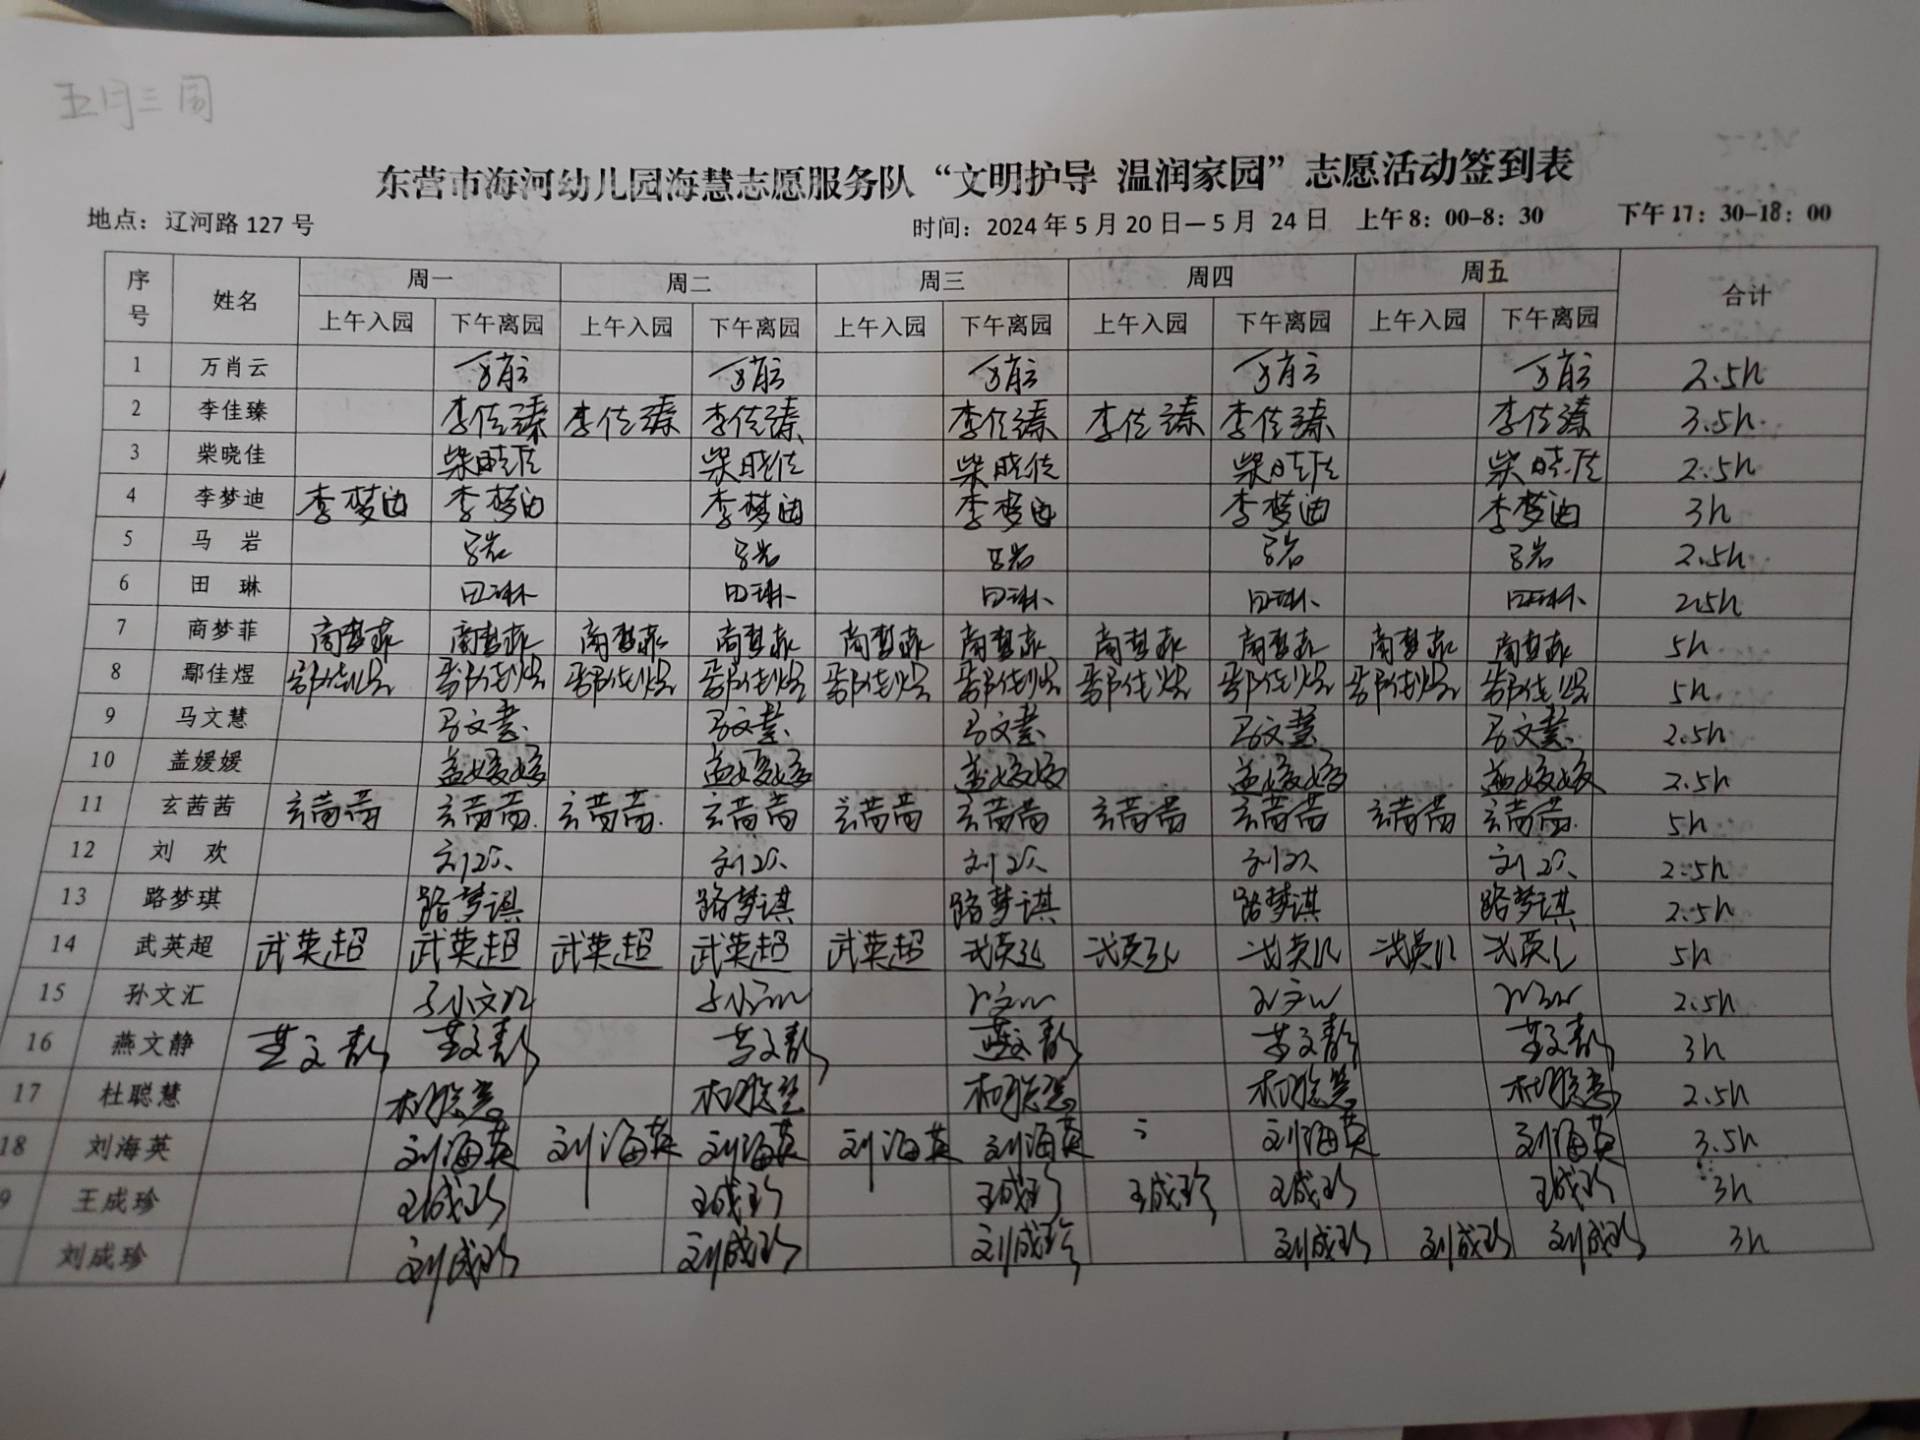 五月三周
东营市海河幼儿园海慧志愿服务队“文明护导 温润家园”志愿活动签到表
地点：辽河路 127 号 时间：2024 年 5 月 20 日—5 月 24 日 上午 8：00-8：30 下午 17：30-18：00
序号 姓名 周一 周二 周三 周四 周五 合计
上午入园 下午离园 上午入园 下午离园 上午入园 下午离园 上午入园 下午离园 上午入园 下午离园
1 万肖云 万肖云 万肖云 万肖云 万肖云 万肖云 2.5h
2 李佳臻 李佳臻 李佳臻 李佳臻 李佳臻 李佳臻 李佳臻 李佳臻 3.5h
3 柴晓佳 柴晓佳 柴晓佳 柴晓佳 柴晓佳 柴晓佳 2.5h
4 李梦迪 李梦迪 李梦迪 李梦迪 李梦迪 李梦迪 李梦迪 3h
5 马 岩 马岩 马岩 马岩 马岩 马岩 2.5h
6 田 琳 田琳 田琳 田琳 田琳 田琳 2.5h
7 商梦菲 商梦菲 商梦菲 商梦菲 商梦菲 商梦菲 商梦菲 商梦菲 商梦菲 商梦菲 商梦菲 5h
8 鄢佳煜 鄢佳煜 鄢佳煜 鄢佳煜 鄢佳煜 鄢佳煜 鄢佳煜 鄢佳煜 鄢佳煜 鄢佳煜 鄢佳煜 5h
9 马文慧 马文慧 马文慧 马文慧 马文慧 马文慧 2.5h
10 盖媛媛 盖媛媛 盖媛媛 盖媛媛 盖媛媛 盖媛媛 2.5h
11 玄茜茜 玄茜茜 玄茜茜 玄茜茜 玄茜茜 玄茜茜 玄茜茜 玄茜茜 玄茜茜 玄茜茜 玄茜茜 5h
12 刘 欢 刘欢 刘欢 刘欢 刘欢 刘欢 2.5h
13 路梦琪 路梦琪 路梦琪 路梦琪 路梦琪 路梦琪 2.5h
14 武英超 武英超 武英超 武英超 武英超 武英超 武英超 武英超 武英超 武英超 武英超 5h
15 孙文汇 孙文汇 孙文汇 孙文汇 孙文汇 孙文汇 2.5h
16 燕文静 燕文静 燕文静 燕文静 燕文静 燕文静 燕文静 3h
17 杜聪慧 杜聪慧 杜聪慧 杜聪慧 杜聪慧 杜聪慧 2.5h
18 刘海英 刘海英 刘海英 刘海英 刘海英 刘海英 刘海英 刘海英 3.5h
9 王成珍 王成珍 王成珍 王成珍 王成珍 王成珍 王成珍 3h
刘成珍 刘成珍 刘成珍 刘成珍 刘成珍 刘成珍 刘成珍 3h